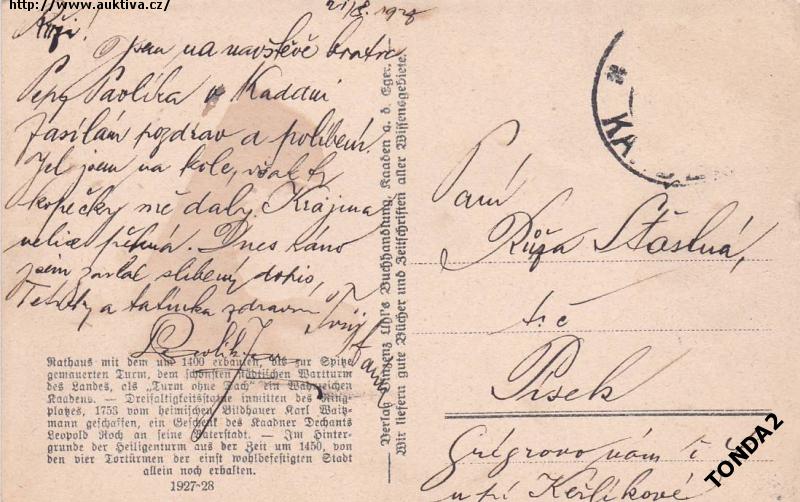 http://www.auktiva.cz/
21/8. 1928
jsem na navštěvě bratra
Pepy Pavlíka v Kadani
Zasílám pozdrav a políbení.
Jel jsem na kole, však ty
kopečky mě daly. Krajina
velice pěkná. Dnes ráno
jsem zaslal slíbený dopis,
a tatínka zdravím
Tvůj
Rathaus mit dem um 1400 erbauten, bis zur Spitze
gemauerten Turm, dem schönsten städtischen Wartturm
des Landes, als „Turm ohne Dach“ ein Wahrzeichen
Kaadens. — Dreifaltigkeitsstatue inmitten des Ring-
platzes, 1753 vom heimischen Bildhauer Karl Waitz-
mann geschaffen, ein Geschenk des Kaadner Dechants
Leopold Roch an seine Vaterstadt. — Im Hinter-
grunde der Heiligenturm aus der Zeit um 1450, von
den vier Tortürmen der einst wohlbefestigten Stadt
allein noch erhalten.
1927-28
Verlag Vinzenz Uhl's Buchhandlung, Kaaden a. d. Eger.
Wir liefern gute Bücher und Zeitschriften aller Wissensgebiete.
KA
Paní
Růža Šťastná,
t. č.
Písek
nám
u pí
TONDA2